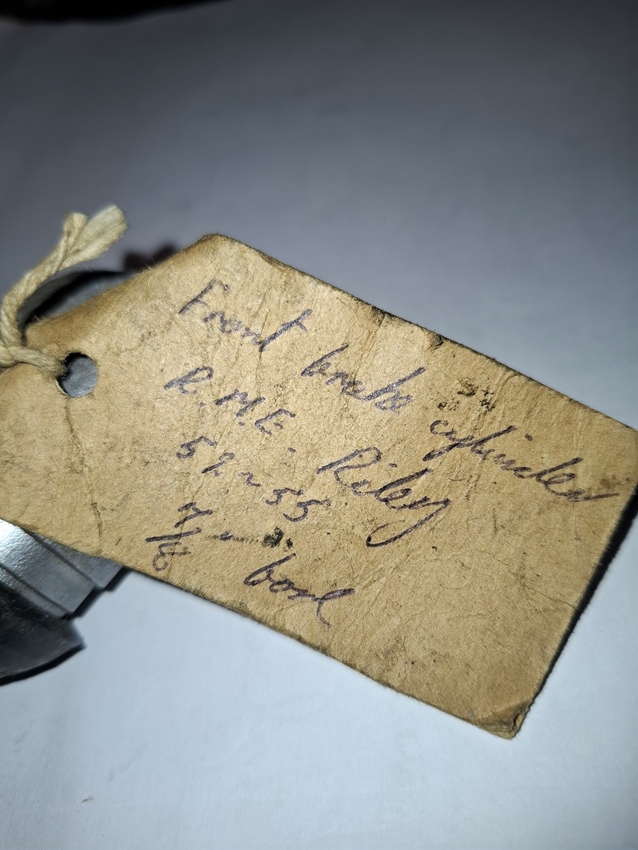 Front brake cylinder
R.M.E. Riley
52 ~ 55
7/8 bore